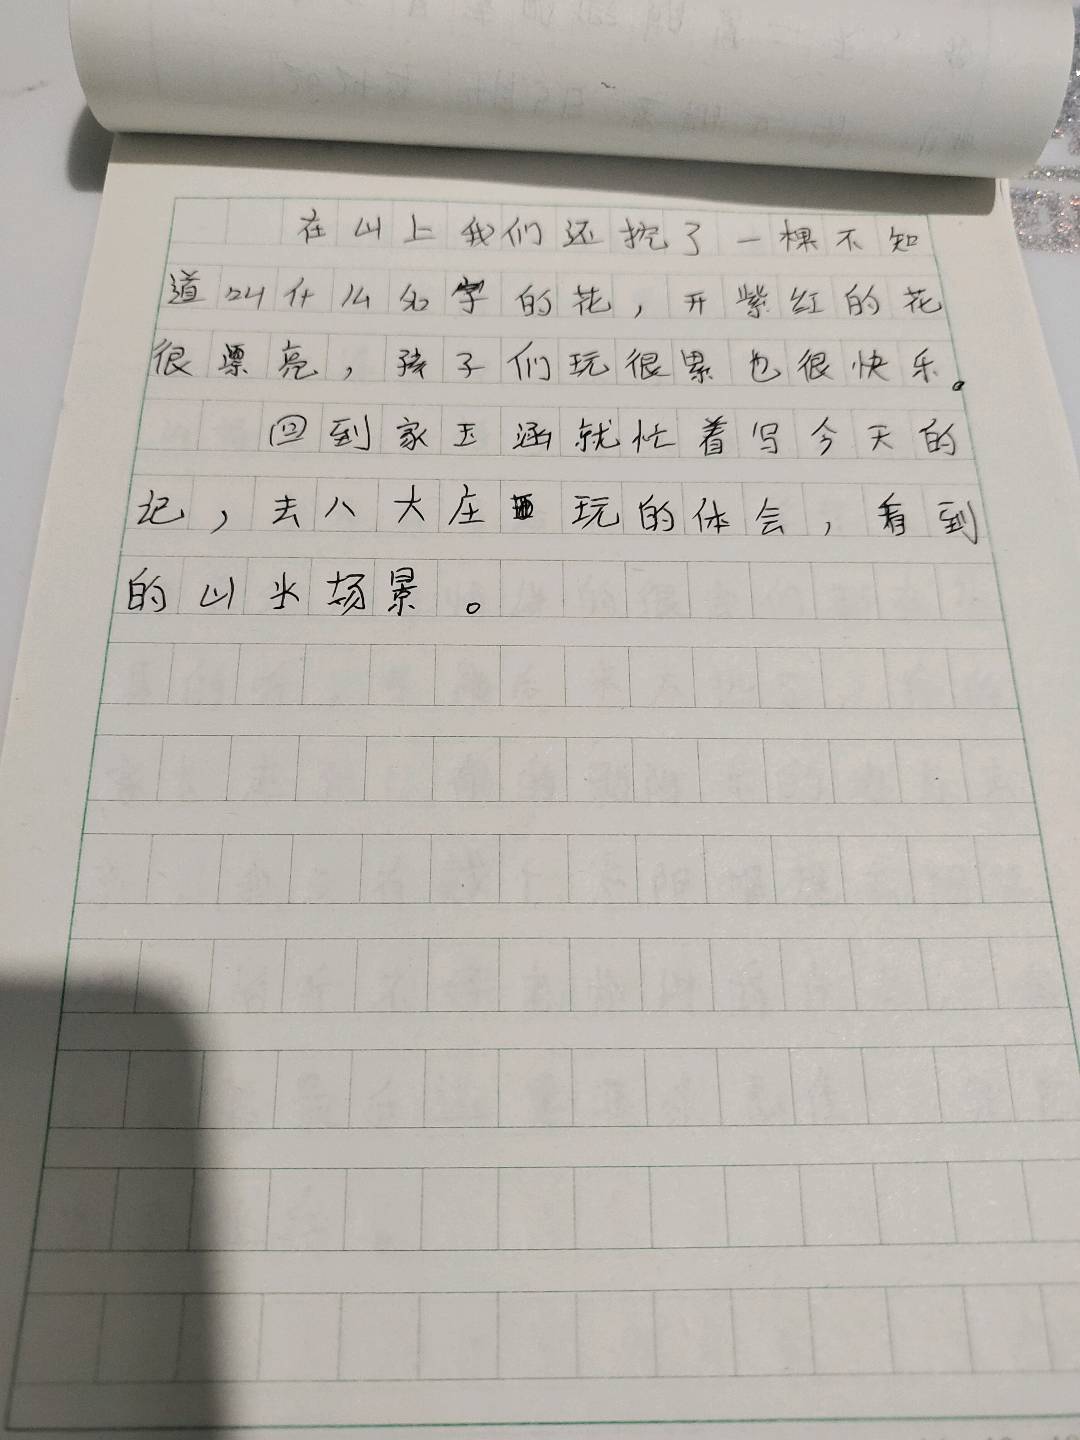 在山上我们还挖了一棵不知
道叫什么名字的花，开紫红的花
很漂亮，孩子们玩很累也很快乐。
回到家玉涵就忙着写今天的
记，去八大庄玩的体会，看到
的山水场景。